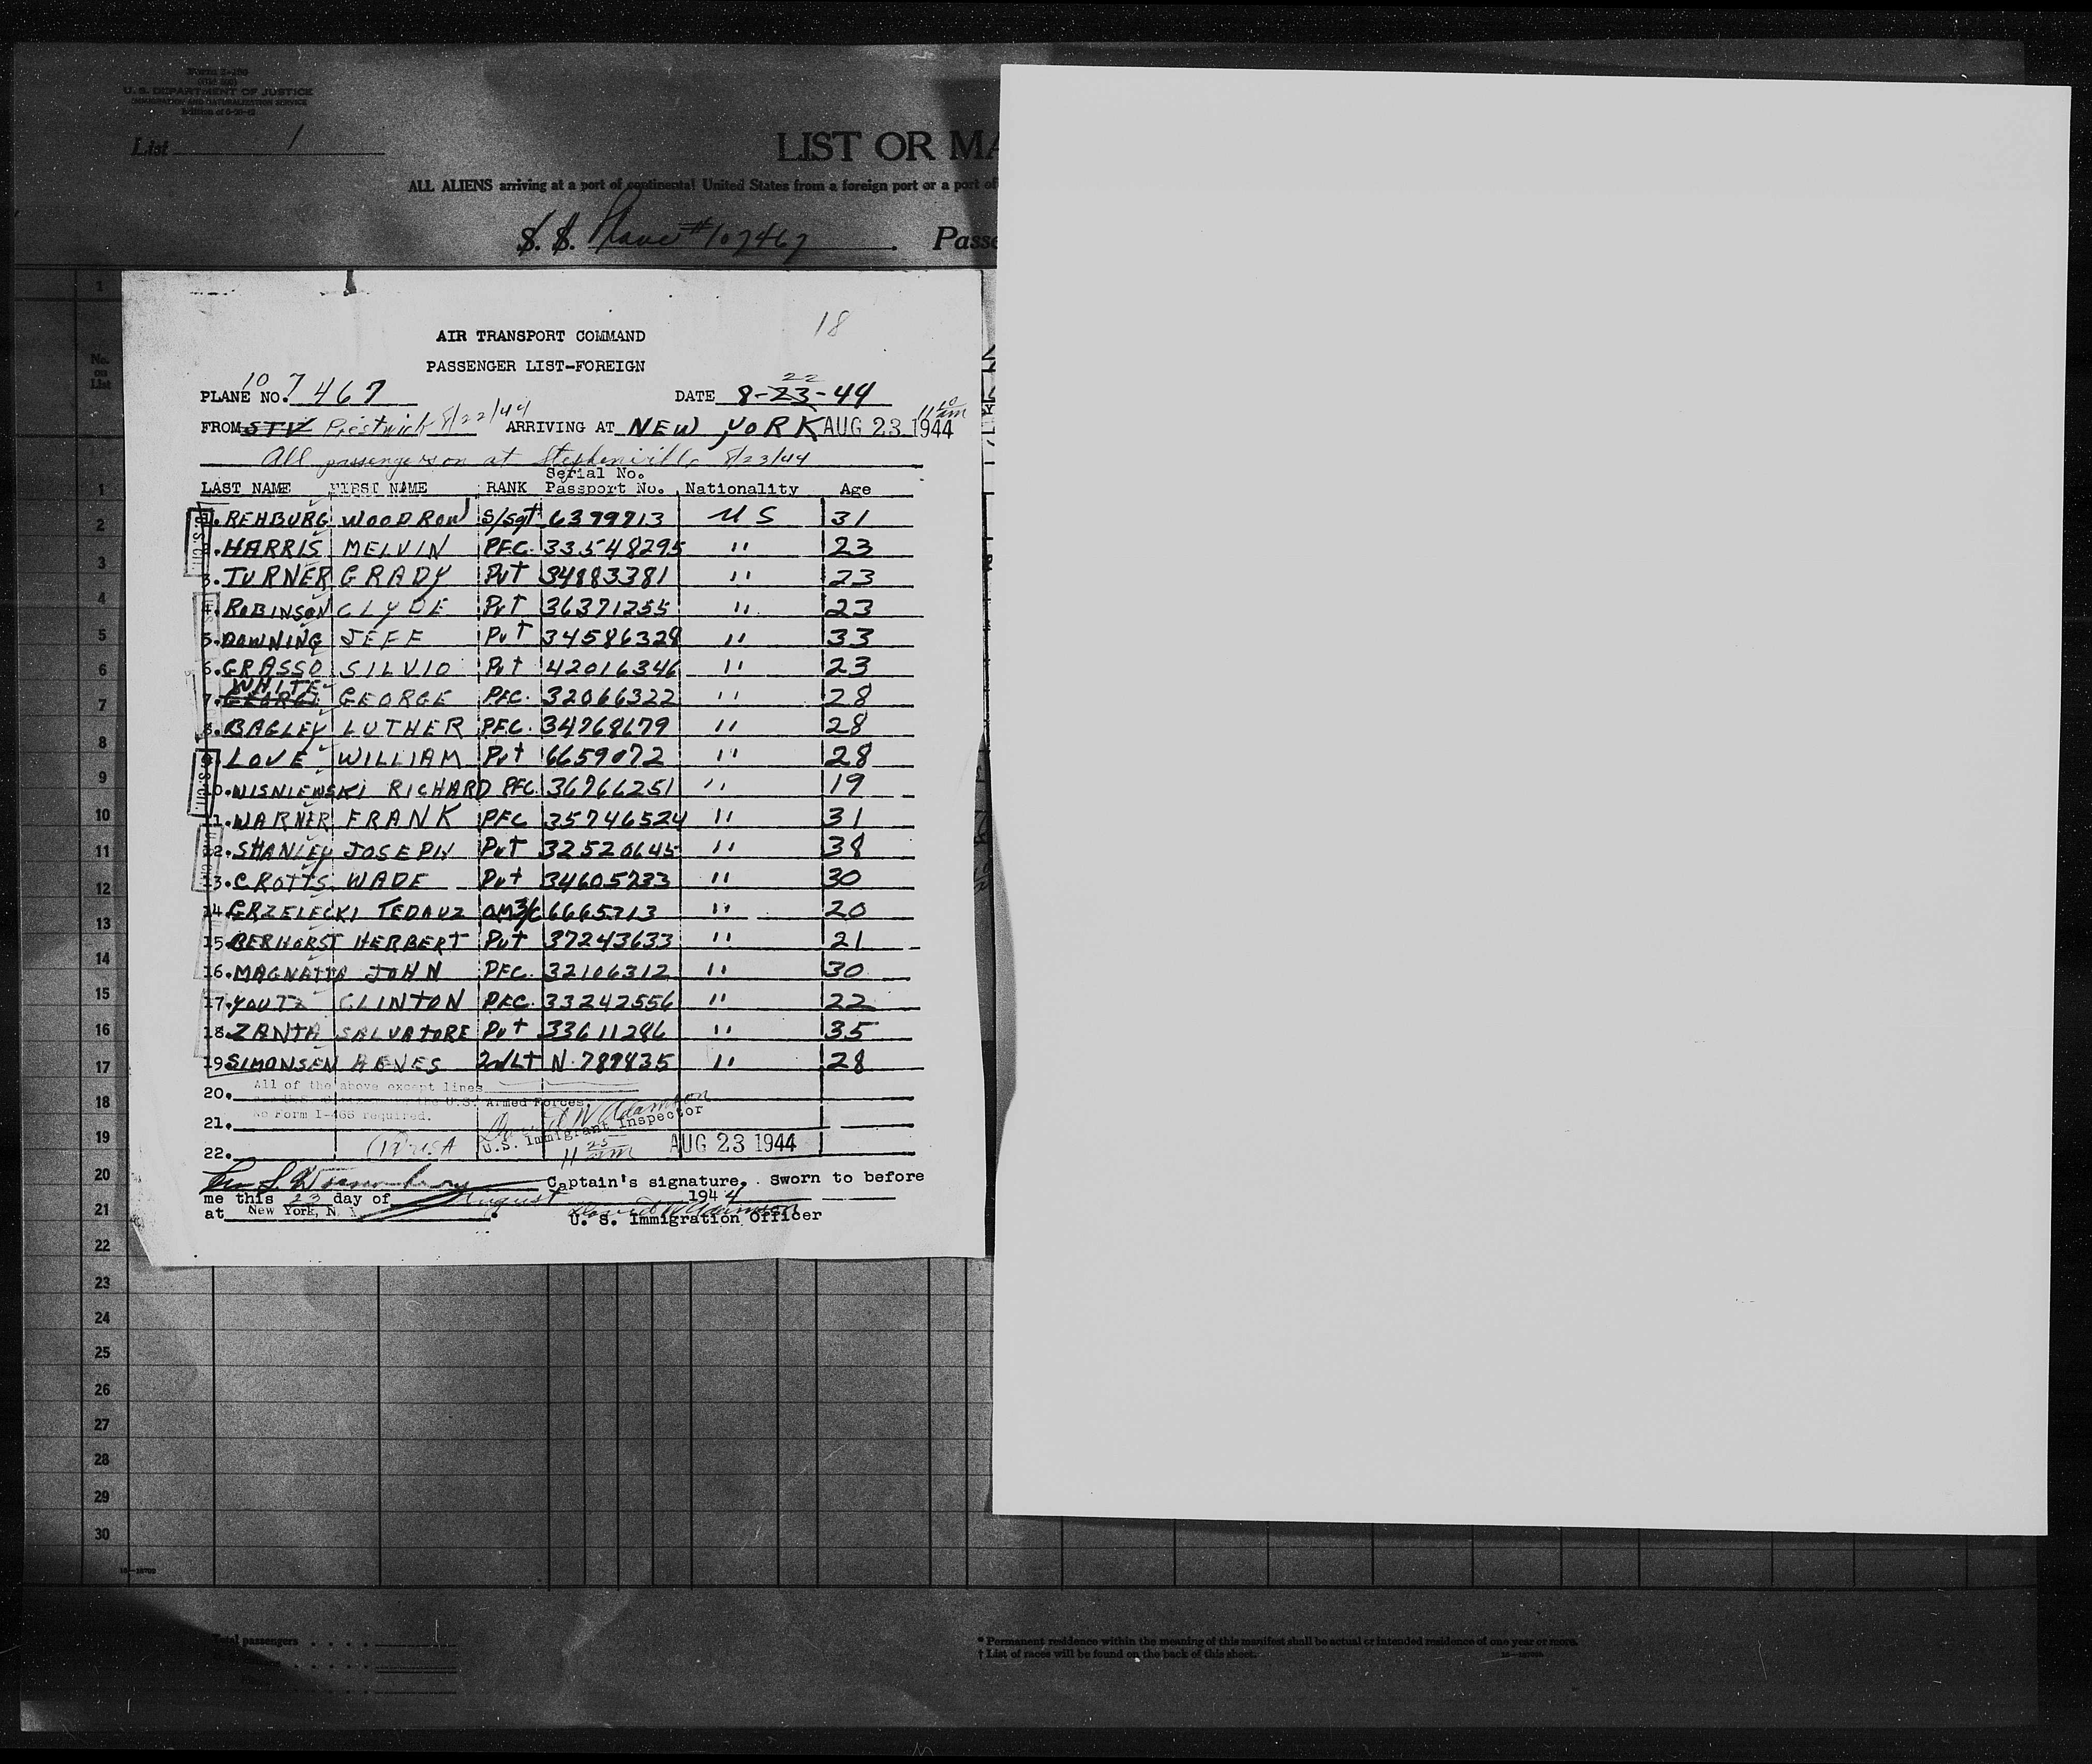 U. S. DEPARTMENT OF JUSTICE
IMMIGRATION AND NATURALIZATION SERVICE
List 1
LIST OR MA
ALL ALIENS arriving at a port of continental United States from a foreign port or a port of
S. S. Plane #107467. Passe
1
18
AIR TRANSPORT COMMAND
PASSENGER LIST-FOREIGN
PLANE NO. 107467 DATE 8-23-44 22
FROM STV Prestwick 8/22/44 ARRIVING AT NEW YORK AUG 23 1944
All passengers on at Stephenville 8/23/44
Serial No.
LAST NAME FIRST NAME RANK Passport No. Nationality Age
1. REHBURG WOODROW S/Sgt 6399913 U S 31
2. HARRIS MELVIN PFC. 33548295 " 23
3. TURNER GRADY Pvt 34883381 " 23
4. ROBINSON CLYDE Pvt 36371255 " 23
5. DOWNING JEFF Pvt 34586328 " 33
6. GRASSO SILVIO Pvt 42016346 " 23
WHITE
7. GEORGE GEORGE PFC. 32066322 " 28
8. BAGLEY LUTHER PFC. 34768679 " 28
9. LOVE WILLIAM Pvt 6659072 " 28
10. WISNIEWSKI RICHARD PFC. 36766251 " 19
11. WARNER FRANK PFC 35746524 " 31
12. SHANLEY JOSEPH Pvt 32520645 " 38
13. CROTTS WADE Pvt 34605733 " 30
14. GRZELECKI TEDAUZ QM3/c 6665713 " 20
15. BERHORST HERBERT Pvt 37243633 " 21
16. MAGNATTA JOHN PFC. 32106312 " 30
17. YOUTZ CLINTON PFC. 33242556 " 22
18. ZANTA SALVATORE Pvt 33611286 " 35
19 SIMONSEN AGNES 2nd LT N-789435 " 28
All of the above except lines
U.S. Armed Forces.
No Form I-466 required.
20.
21.
U.S. Immigrant Inspector
22. AUG 23 1944
Captain's signature. Sworn to before
me this 23 day of August 1944
at New York, N. Y.
U. S. Immigration Officer
No.
on
List
1
2
3
4
5
6
7
8
9
10
11
12
13
14
15
16
17
18
19
20
21
22
23
24
25
26
27
28
29
30
Total passengers
* Permanent residence within the meaning of this manifest shall be actual or intended residence of one year or more.
† List of races will be found on the back of this sheet.